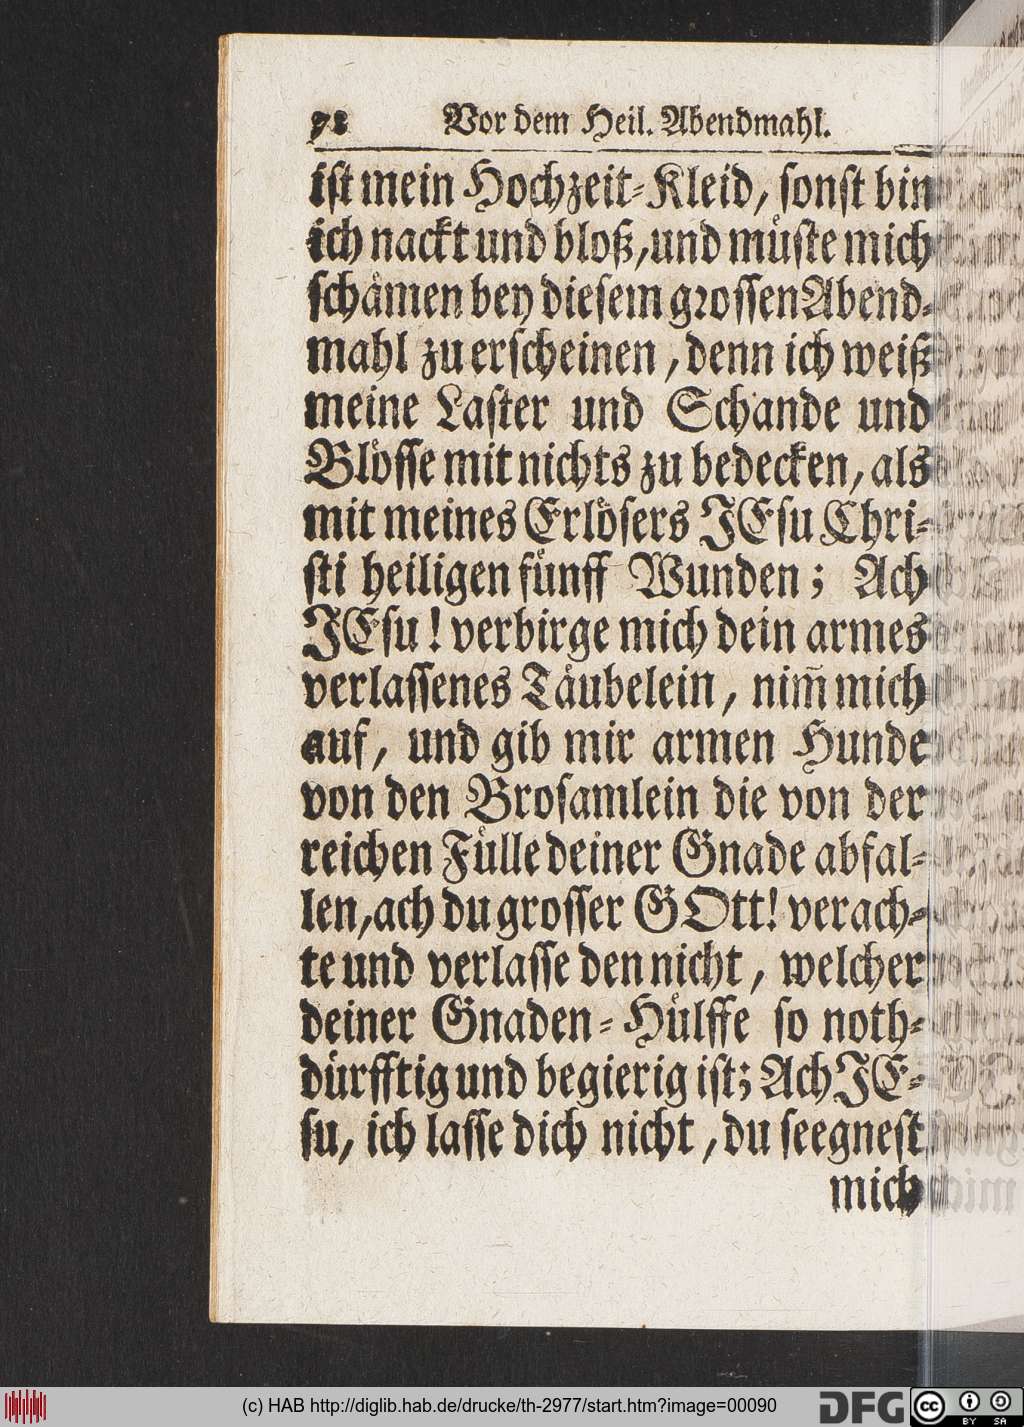 78 Vor dem Heil. Abendmahl.
ist mein Hochzeit-Kleid, sonst bin
ich nackt und bloß, und müste mich
schämen bey diesem grossen Abend-
mahl zu erscheinen, denn ich weiß
meine Laster und Schande und
Blösse mit nichts zu bedecken, als
mit meines Erlösers JEsu Chri-
sti heiligen fünff Wunden; Ach
JEsu! verbirge mich dein armes
verlassenes Täubelein, nim̄ mich
auf, und gib mir armen Hunde
von den Brosamlein die von der
reichen Fülle deiner Gnade abfal-
len, ach du grosser GOtt! verach-
te und verlasse den nicht, welcher
deiner Gnaden-Hülffe so noth-
dürfftig und begierig ist; Ach JE-
su, ich lasse dich nicht, du seegnest
mich
(c) HAB http://diglib.hab.de/drucke/th-2977/start.htm?image=00090
DFG
cc BY SA